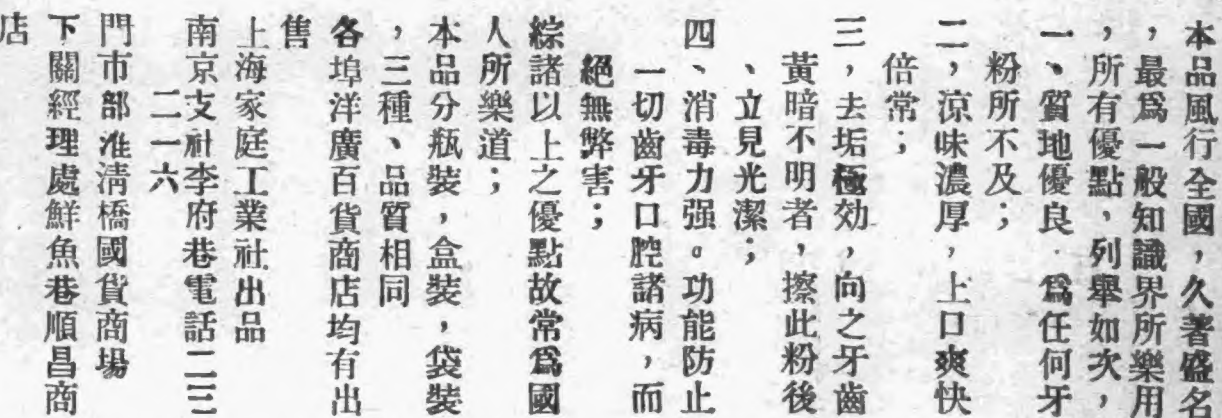 本品風行全國，久著盛名
，最爲一般知識界所樂用
，所有優點、列舉如次，
一、質地優良．爲任何牙
粉所不及；
二，涼味濃厚，上口爽快
倍常；
三，去垢極効，向之牙齒
黃暗不明者，擦此粉後
、立見光潔；
四、消毒力强。功能防止
一切齒牙口腔諸病，而
絕無弊害；
綜諸以上之優點故常爲國
人所樂道；
本品分瓶裝，盒裝，袋裝
，三種、品質相同
各埠洋廣百貨商店均有出
售
上海家庭工業社出品
南京支社李府巷電話二三
二一六
門市部准淸橋國貨商場
下關經理處鮮魚巷順昌商
店